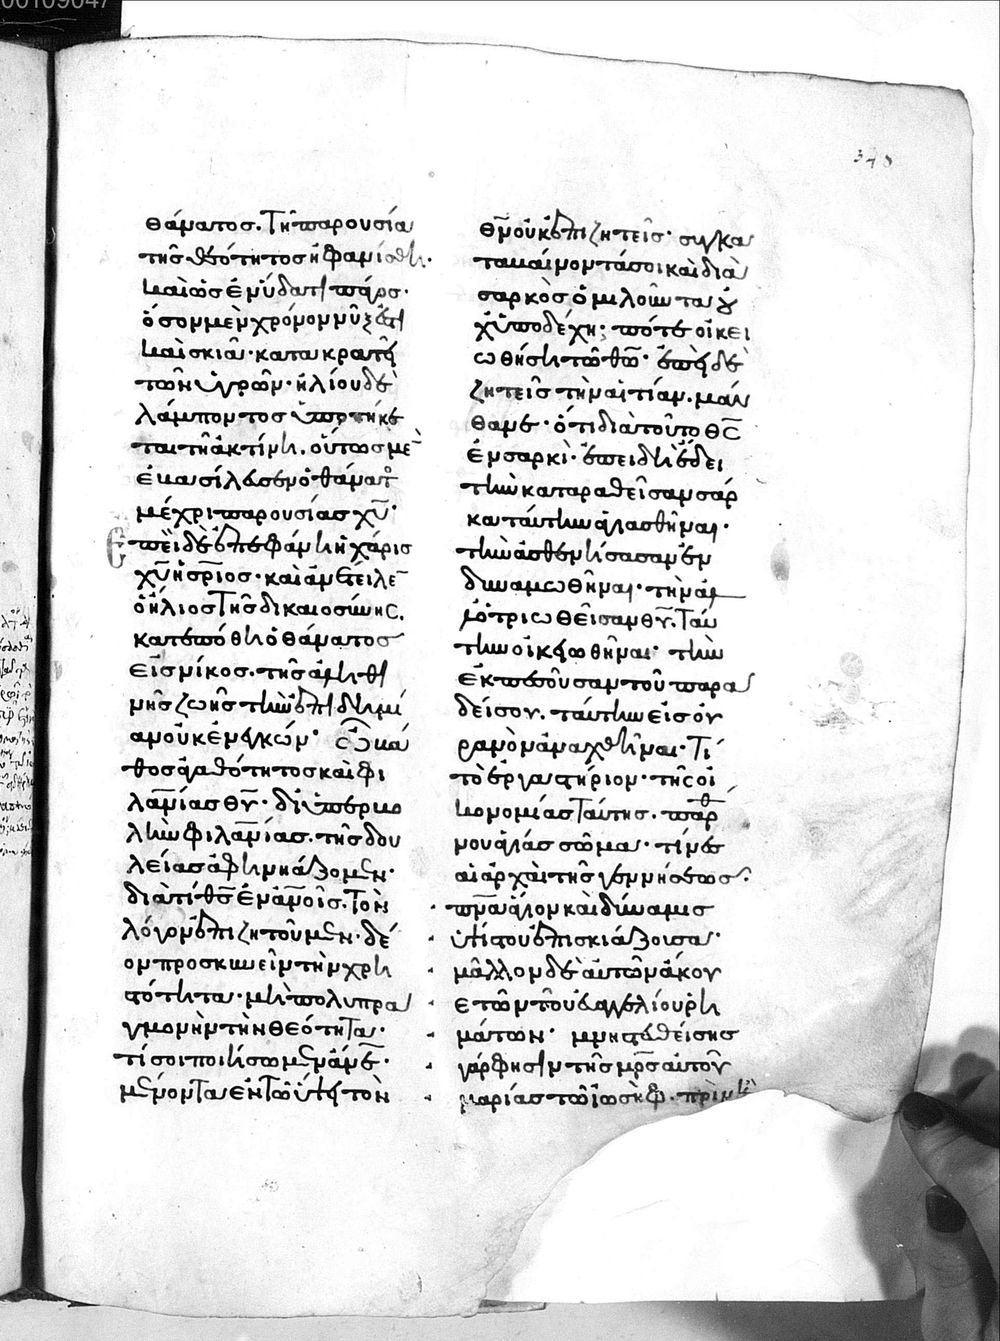 00109047
348
θάνατος. Τῇ παρουσία
τῆς θεότητος ἠφανίσθη.
καὶ ὡς ἐν ὕδατι πάγος·
ὅσον μὲν χρόνον νὺξ ἐστὶ
καὶ σκιὰ· κατακρατεῖ
τῶν ὑγρῶν· ἡλίου δὲ
λάμποντος ὑπο τήκε
ται τῆ ἀκτίνι. οὕτως μὲ
ἐβασίλευσεν ὁ θάνατο
μέχρι παρουσίας χῦ·
Ἐπειδὲ ἐπεφάνη ἡ χάρις
χῦ ἡ σριος· καὶ ἀνέτειλε
ὁ ἥλιος τῆς δικαιοσύνης.
κατεπόθη ὁ θάνατος
εἰς νίκος. τῆς ἀληθι
νῆς ζωῆς τὴν ἐπιδημί
αν οὐκ ἐνεγκών· ὢ βά
θος ἀγαθότητος καὶ φι
λανίας θῦ· δι ὑπερβο
λὴν φιλανίας. τῆς δου
λείας ἀφηνιάζομεν·
διατί θς ἐν ἀνοις. Τὸν
λόγον ἐπιζητοῦμεν· δέ
ον προσκυνεῖν τὴν χρη
στότητα· μὴ πολυπρα
γμονῆν τὴν θεότητα·
τί σοι ποιήσωμεν ἄνε·
μένοντα ἐν τῶ ὕψει τὸν
θν οὐκ ἐπιζητεῖς· συγκα
ταβαίνοντά σοι καὶ διὰ
σαρκὸς ὁμιλοῦντα οὐ
χ ὑποδέχη; πότε οἰκει
ωθήση τῶ θῶ· ἐπεὶ δὲ
ζητεῖς τὴν αἰτίαν. μάν
θανε· ὅτι διὰ τοῦτο θς
ἐν σαρκὶ· ἐπειδὴ ἔδει
τὴν καταραθεῖσαν σάρ
κα ταύτην ἁγιασθῆναι·
τὴν ἀσθενήσασαν ἐν
δυναμωθῆναι· τὴν ἀλ
λοτριωθεῖσαν θῦ. Ταύ
την οἰκειωθῆναι· τὴν
ἐκπεσοῦσαν τοῦ παρα
δείσου. ταύτην εἰς οὐ
ρανὸν ἀναχθῆναι· Τί
τὸ ἐργαστήριον· τῆς οἰ
κονομίας ταύτης. παρ
νου ἁγίας σῶμα· τίνες
αἱ ἀρχαὶ τῆς γεννήσεως·
πνα ἅγιον καὶ δύναμις
ὑψίστου ἐπισκιάζουσα·
μᾶλλον δὲ αὐτῶν ἄκου
ε τῶν τοῦ εὐαγγελίου ῥη
μάτων· μνηστευθείσης
γάρ φησιν τῆς μρς αὐτοῦ
μαρίας τῶ ἰωσὴφ. πρὶν ἢ